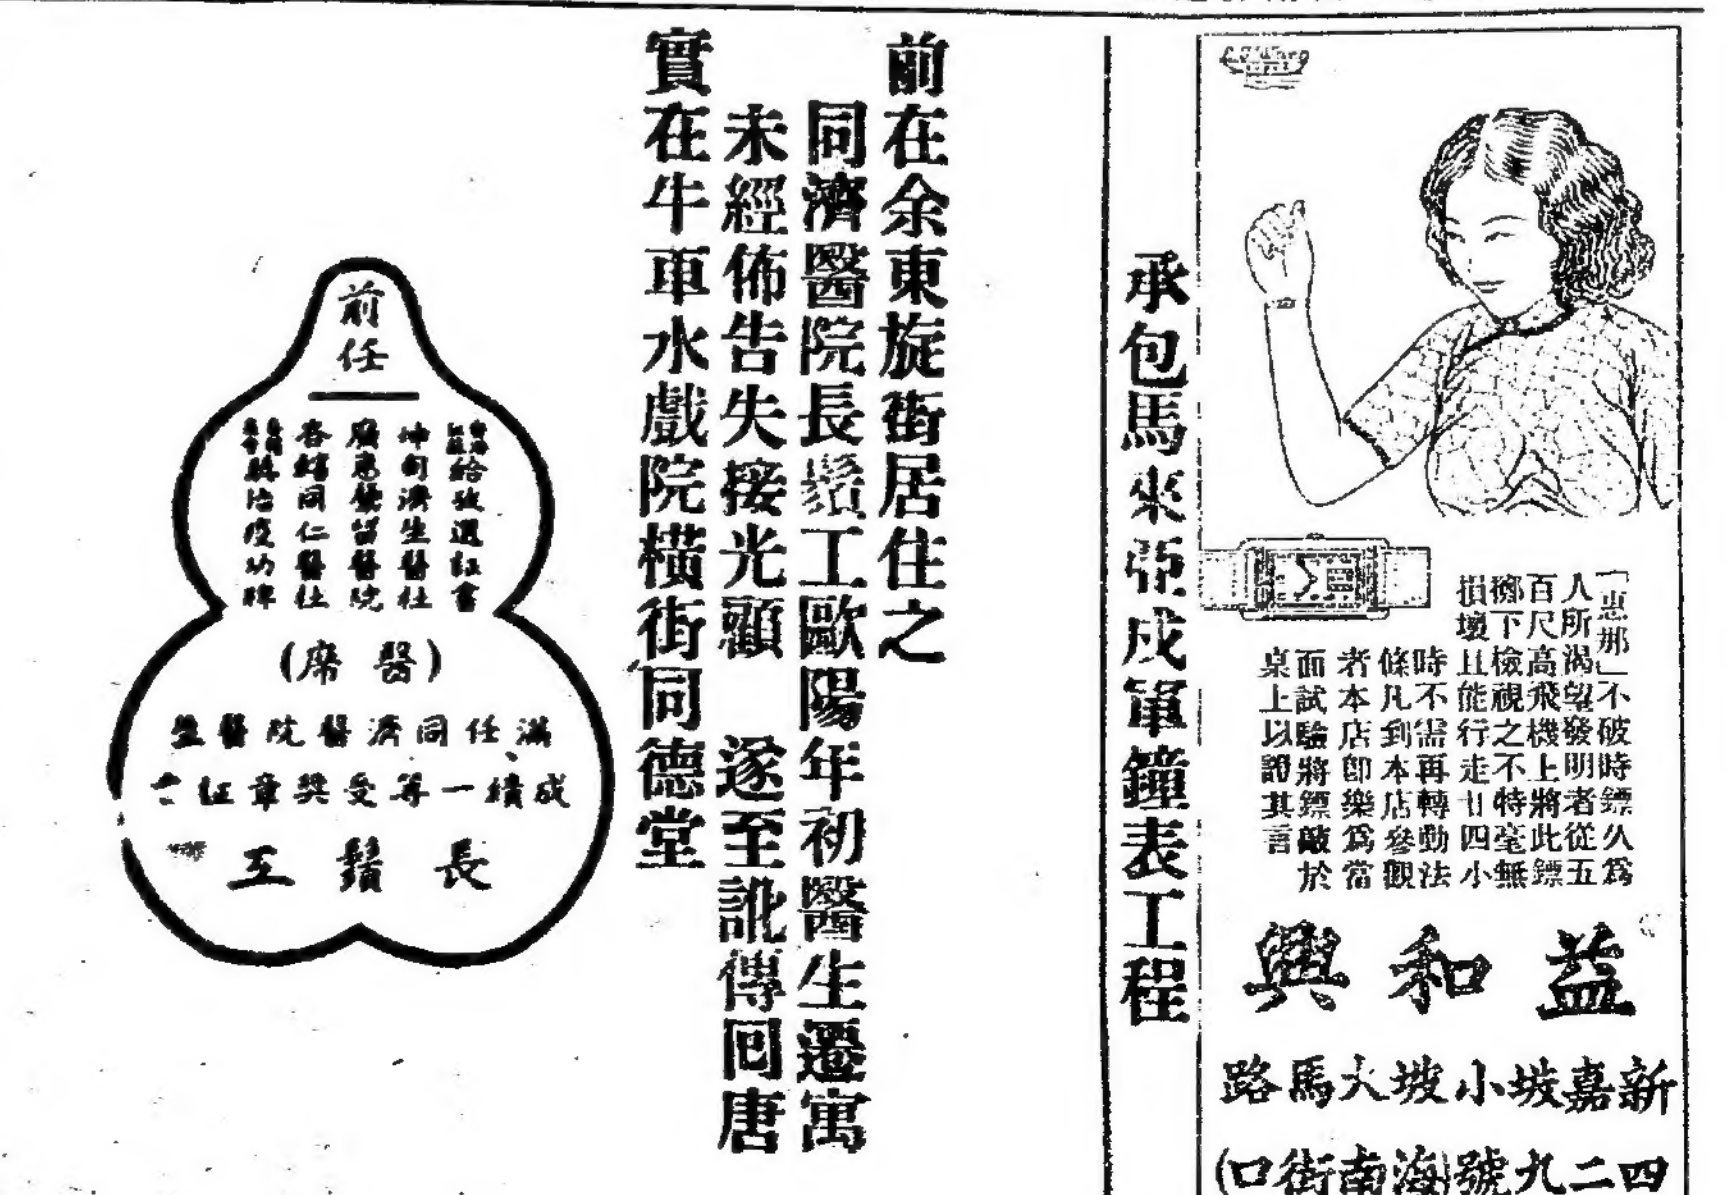 「惠那」不破時鏢久爲
人所渴望發明者從五
百尺高飛機上將此鏢
擲下檢視之不特毫無
損壞且能行走廿四小
時不需再轉動法
條凡到本店參觀
者本店卽樂爲當
面試驗將鏢敲於
桌上以證其言
益和興
新嘉坡小坡大馬路
四二九號(海南街口)
承包馬來亞戍軍鐘表工程
前在余東旋街居住之
同濟醫院長鬚工歐陽年初醫生遷寓
未經佈告失接光顧 遂至訛傳囘唐
實在牛車水戲院橫街同德堂
前任
給攷選証書
坤甸濟生醫社
廣惠肇留醫院
吝轄同仁醫社
治疫功牌
(醫席)
滿任同濟醫院醫
成績一等受奬章証
長鬚工